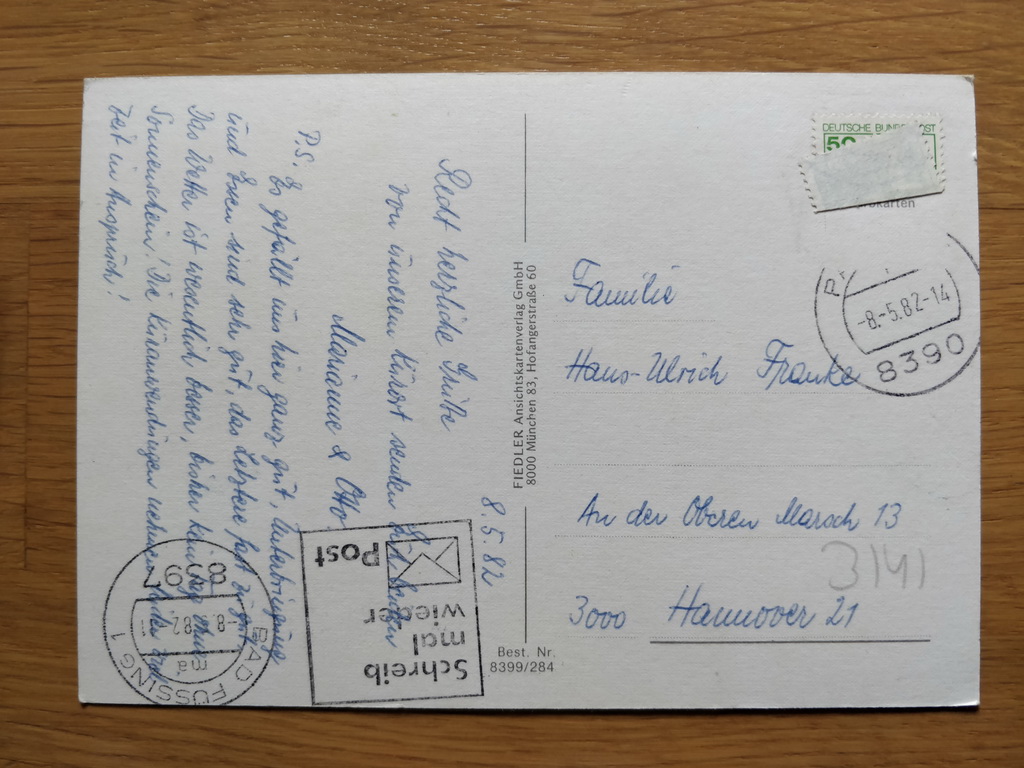 8.5.82
Recht herzliche Grüße
von unserem Kurort senden
Marianne & Otto
P.S. Es gefällt uns hier ganz gut, Unterbringung
und Essen sind sehr gut, das Letztere fast zu gut.
Das Wetter ist wesentlich besser, bisher kein Tag ohne
Sonnenschein! Die Kuranwendungen nehmen
Zeit in Anspruch!
Schreib
mal
wieder
Post
8397
-8.-5.82
ma
BAD FÜSSING 1
FIEDLER Ansichtskartenverlag GmbH
8000 München 83, Hofangerstraße 60
Best. Nr.
8399/284
DEUTSCHE BUNDESPOST
50
-8.-5.82-14
8390
Familie
Hans-Ulrich Franke
An der Oberen Marsch 13
3141
3000 Hannover 21